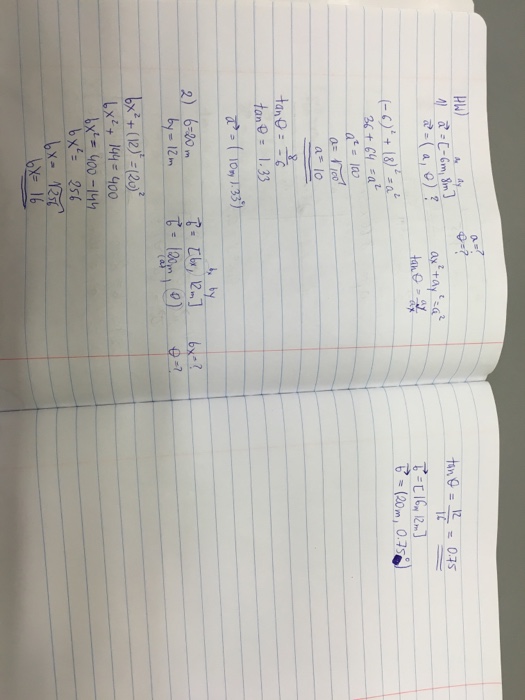 HW)
a=?
θ=?
1) a⃗ = [-6m, 8m]
ax ay
a⃗ = (a, θ)?
ax² + ay² = a²
tanθ = ay/ax
(-6)² + (8)² = a²
36 + 64 = a²
a² = 100
a = √100
a = 10
tanθ = 8/-6
tanθ = 1.33
a⃗ = (10m, 1.33°)
2) b=20m
by = 12m
bx by
b⃗ = [bx, 12m]
b⃗ = (20m, θ)
bx=?
θ=?
bx² + (12)² = (20)²
bx² + 144 = 400
bx² = 400 - 144
bx² = 256
bx = √256
bx = 16
tanθ = 12/16 = 0.75
b⃗ = [16m, 12m]
b⃗ = (20m, 0.75°)